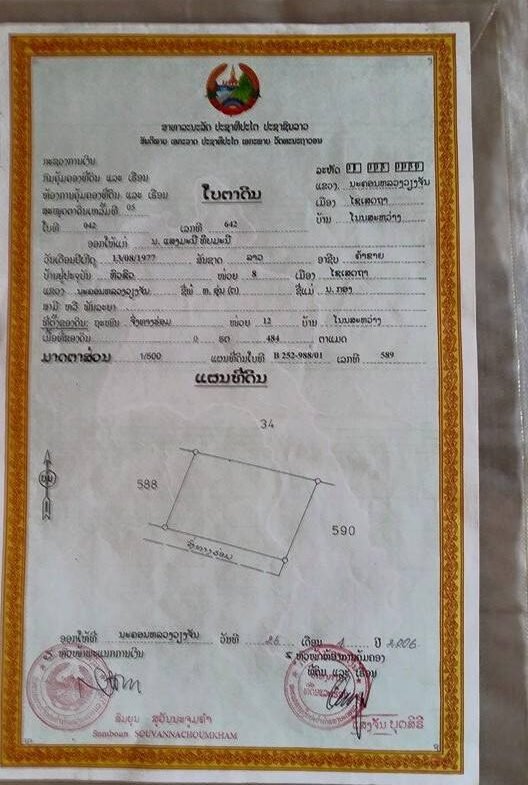 ສາທາລະນະລັດ ປະຊາທິປະໄຕ ປະຊາຊົນລາວ
ສັນຕິພາບ ເອກະລາດ ປະຊາທິປະໄຕ ເອກະພາບ ວັດທະນະຖາວອນ
ກະຊວງການເງິນ
ກົມຄຸ້ມຄອງທີ່ດິນ ແລະ ເຮືອນ
ຫ້ອງການຄຸ້ມຄອງທີ່ດິນ ແລະ ເຮືອນ
ສະໝຸດຕາດິນເຫລັ້ມທີ 05
ໃບທີ 042 ເລກທີ 642
ໃບຕາດິນ
ລະຫັດ 01
ແຂວງ ນະຄອນຫລວງວຽງຈັນ
ເມືອງ ໄຊເສດຖາ
ບ້ານ ໂນນສະຫວ່າງ
ອອກໃຫ້ແກ່ ນ. ແສງມະນີ ທິບມະນີ
ວັນເດືອນປີເກີດ 13/08/1977 ສັນຊາດ ລາວ ອາຊີບ ຄ້າຂາຍ
ບ້ານຢູ່ປະຈຸບັນ ຫົວຂົວ ໜ່ວຍ 8 ເມືອງ ໄຊເສດຖາ
ແຂວງ ນະຄອນຫລວງວຽງຈັນ ຊື່ພໍ່ ທ. ຊື່ແມ່ ນ. ກອງ
ສາມີ ຫລື ພັນລະຍາ
ທີ່ຕັ້ງຂອງດິນ: ຖະໜົນ ຊິ່ງທາງສ່ອມ ໜ່ວຍ 12 ບ້ານ ໂນນສະຫວ່າງ
ເນື້ອທີ່ຂອງດິນ 0 ຮຕ 484 ຕາແມດ
ມາດຕາສ່ວນ 1/500 ແຜນທີ່ດິນໃບທີ B 252-988/01 ເລກທີ 589
ແຜນທີ່ດິນ
34
588
590
ທາງສ່ອມ
ອອກໃຫ້ທີ່ ນະຄອນຫລວງວຽງຈັນ ວັນທີ 26 ເດືອນ 1 ປີ 2006
ຫົວໜ້າພະແນກການເງິນ
ຫົວໜ້າຫ້ອງການຄຸ້ມຄອງ
ທີ່ດິນ ແລະ ເຮືອນ
ສົມບູນ ສຸວັນນະຈຸມຄຳ
Somboun SOUVANNACHOUMKHAM
ແສງຈັນ ບຸດສີຣິ